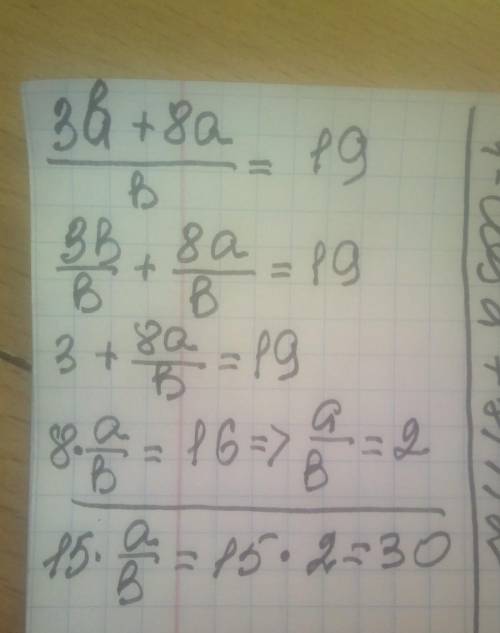 3b + 8a / B = 19
3B / B + 8a / B = 19
3 + 8a / B = 19
8 · a / B = 16 => a / B = 2
15 · a / B = 15 · 2 = 30